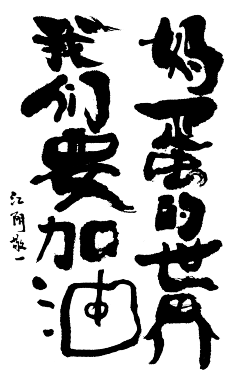 妈蛋的世界
我们要加油
江开敬一